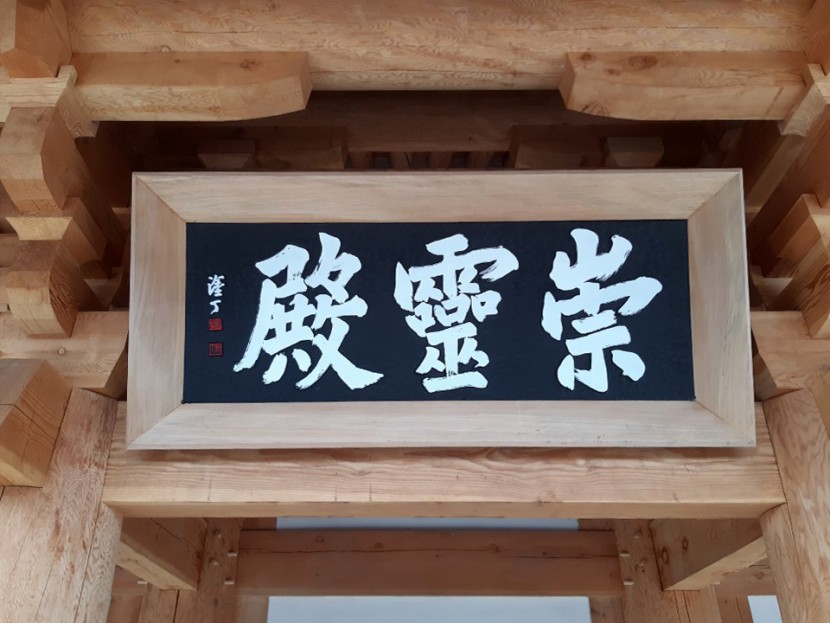 崇靈殿